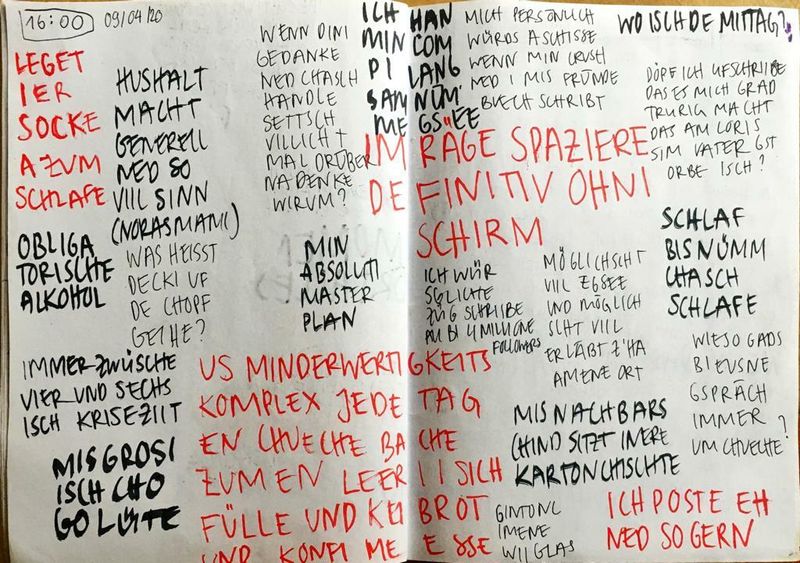 16:00
09/04/20
LEGET
IER
SOCKE
A ZUM
SCHLAFE
HUSHALT
MACHT
GENERELL
NED SO
VIIL SINN
(NORASMAMI)
WENN DINI
GEDANKE
NED CHASCH
HANDLE
SETTSCH
VILLICHT
MAL DRÜBER
NADENKE
WIRUM?
ICH HAN
MIN COM
DI LANG
NÜM
ME GSEE
MICH PERSÖNLICH
WÜRDS ASCHISSE
WENN MIN CRUSH
NED I MIS FRÜNDE
BUECH SCHRIBT
WO ISCH DE MITTAG?
DÖRF ICH UFSCHRIIBE
DAS ES MICH GRAD
TRURIG MACHT
DAS AM LORIS
SIM VATER GST
ORBE ISCH?
IM RAGE SPAZIERE
DE FINITIV OHNI
SCHIRM
OBLIGA
TORISCHE
ALKOHOL
WAS HEISST
DECKI UF
DE CHOPF
GEIHE?
MIN
ABSOLUTI
MASTER
PLAN
ICH WÜR
SGLICHE
ZÜG SCHRIIBE
AU BI 4 MILLIONE
FOLLOWERS
MÖGLICHSCHT
VIIL ZGSEE
UND MÖGLICH
SCHT VIIL
ERLÄBT Z'HA
AMENE ORT
SCHLAF
BIS NÜMM
CHASCH
SCHLAFE
IMMER ZWÜSCHE
VIER UND SECHS
ISCH KRISEZIIT
US MINDERWERTIGKEITS
KOMPLEX JEDE TAG
EN CHUECHE BA CHE
ZUM EN LEERI I SICH
FÜLLE UND KEI BROT
UND KONFI ME ESSE
MIS GROSI
ISCH CHO
GO LÜTE
MIS NACHBARS
CHIND SITZT INERE
KARTONCHISCHTE
WIESO GADS
BI EUSNE
GSPRÄCH
IMMER
UM CHUECHE?
GINTONIC
IMENE
WIIGLAS
ICH POSTE EH
NED SO GERN